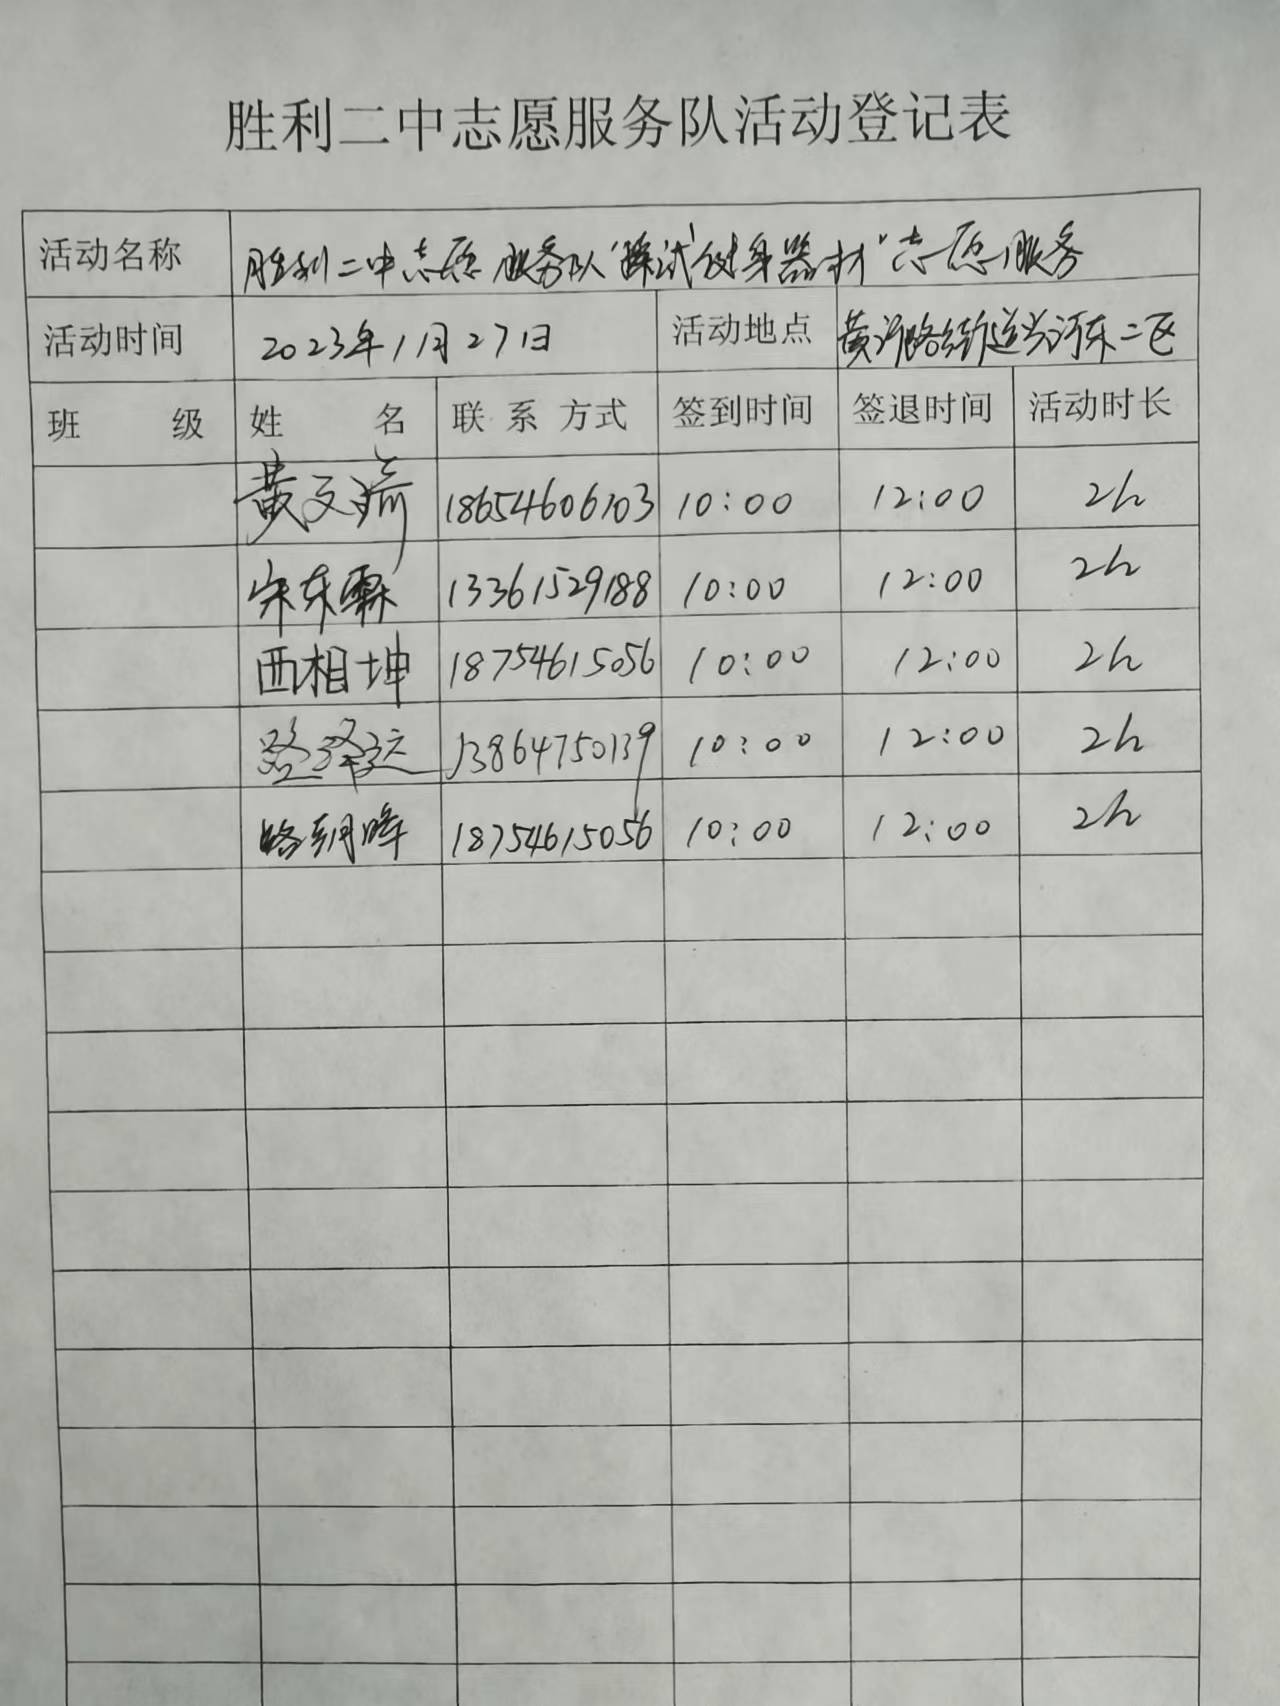 胜利二中志愿服务队活动登记表
活动名称 胜利二中志愿服务队"擦拭健身器材"志愿服务
活动时间 2023年1月27日 活动地点 黄河路街道兴河东二区
班 级 姓 名 联 系 方式 签到时间 签退时间 活动时长
黄文瑜 18654606703 10:00 12:00 2h
宋东霖 13361529188 10:00 12:00 2h
西相坤 18754615056 10:00 12:00 2h
路泽远 13864750139 10:00 12:00 2h
路朝晖 18754615056 10:00 12:00 2h